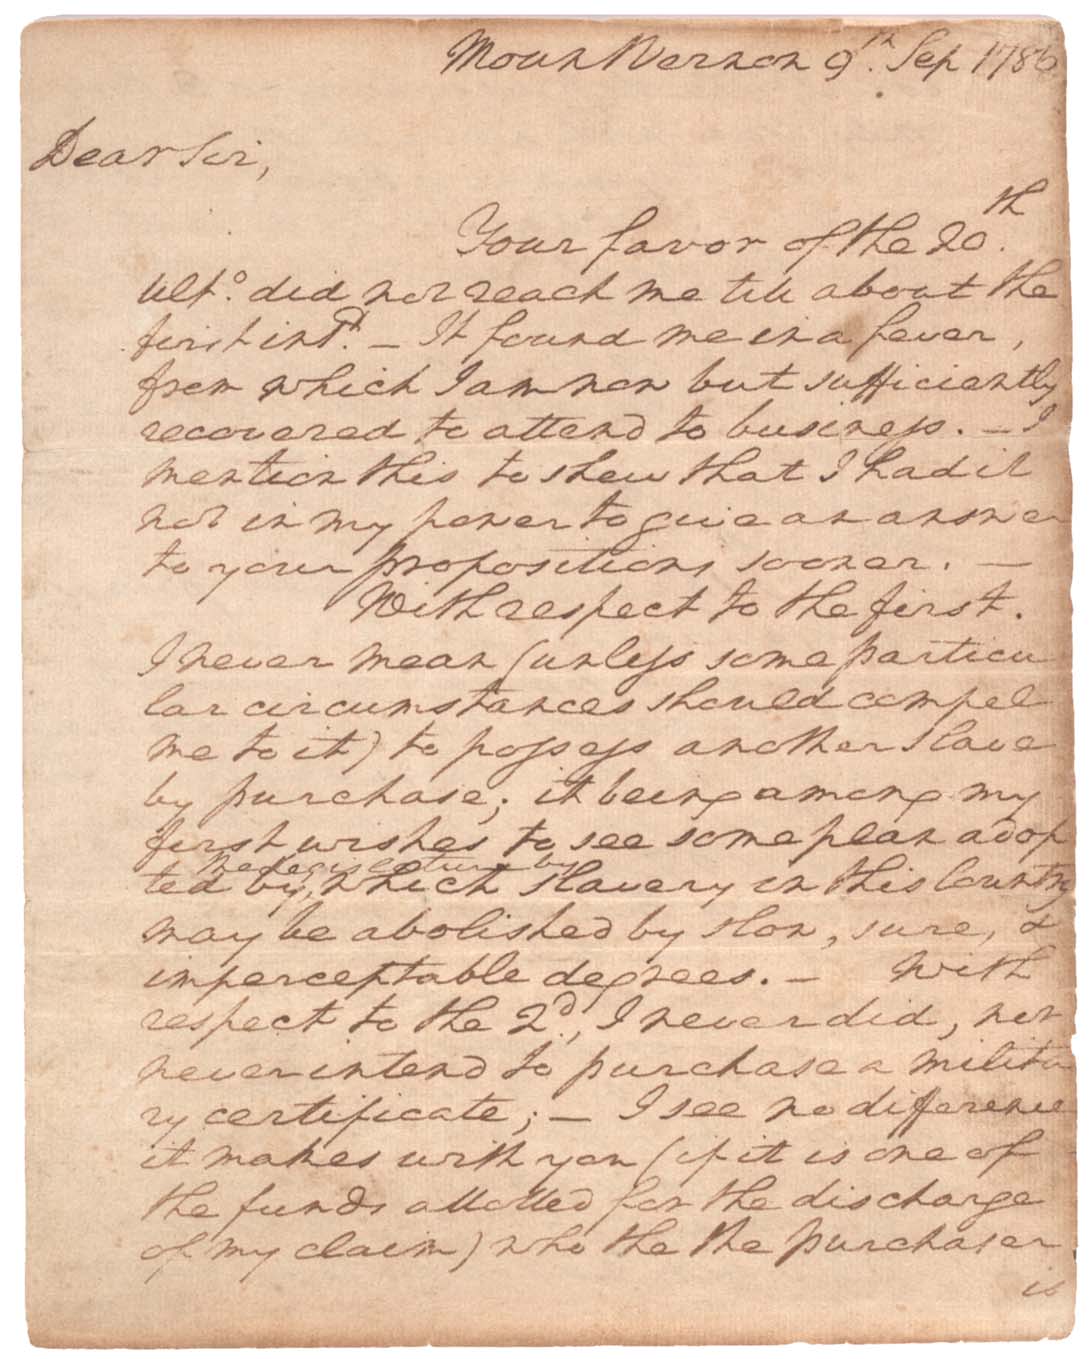 Mount Vernon 9th. Sep 1786
Dear Sir,
Your favor of the 20th.
Ulto. did not reach me till about the
first inst. — It found me in a fever,
from which I am now but sufficiently
recovered to attend to business. — I
mention this to shew that I had it
not in my power to give an answer
to your propositions sooner. —
With respect to the first.
I never mean (unless some particu
lar circumstances should compel
me to it) to possess another slave
by purchase; it being among my
first wishes to see some plan adop
the Legislature by
ted by, which slavery in this Country
may be abolished by slow, sure, &
imperceptable degrees. — With
respect to the 2d., I never did, nor
never intend to purchase a milita
ry certificate; — I see no difference
it makes with you (if it is one of
the funds allotted for the discharge
of my claim) who the the purchaser
is